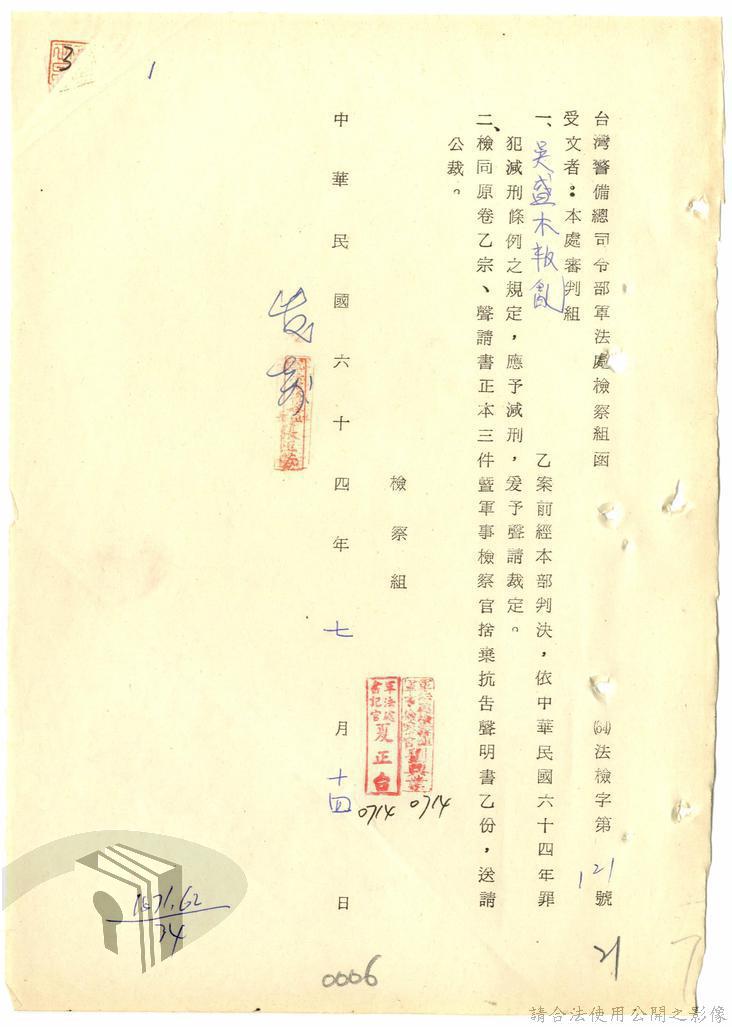 台灣警備總司令部軍法處檢察組函
(64)法檢字第121號
21
受文者：本處審判組
一、吳盛木叛亂乙案前經本部判決，依中華民國六十四年罪
犯減刑條例之規定，應予減刑，爰予聲請裁定。
二、檢同原卷乙宗、聲請書正本三件暨軍事檢察官捨棄抗告聲明書乙份，送請
公裁。
檢察組
0714
軍法處
書記官
夏正台
0714
中華民國六十四年七月十四日
1
3
1571.62
34
0006
請合法使用公開之影像